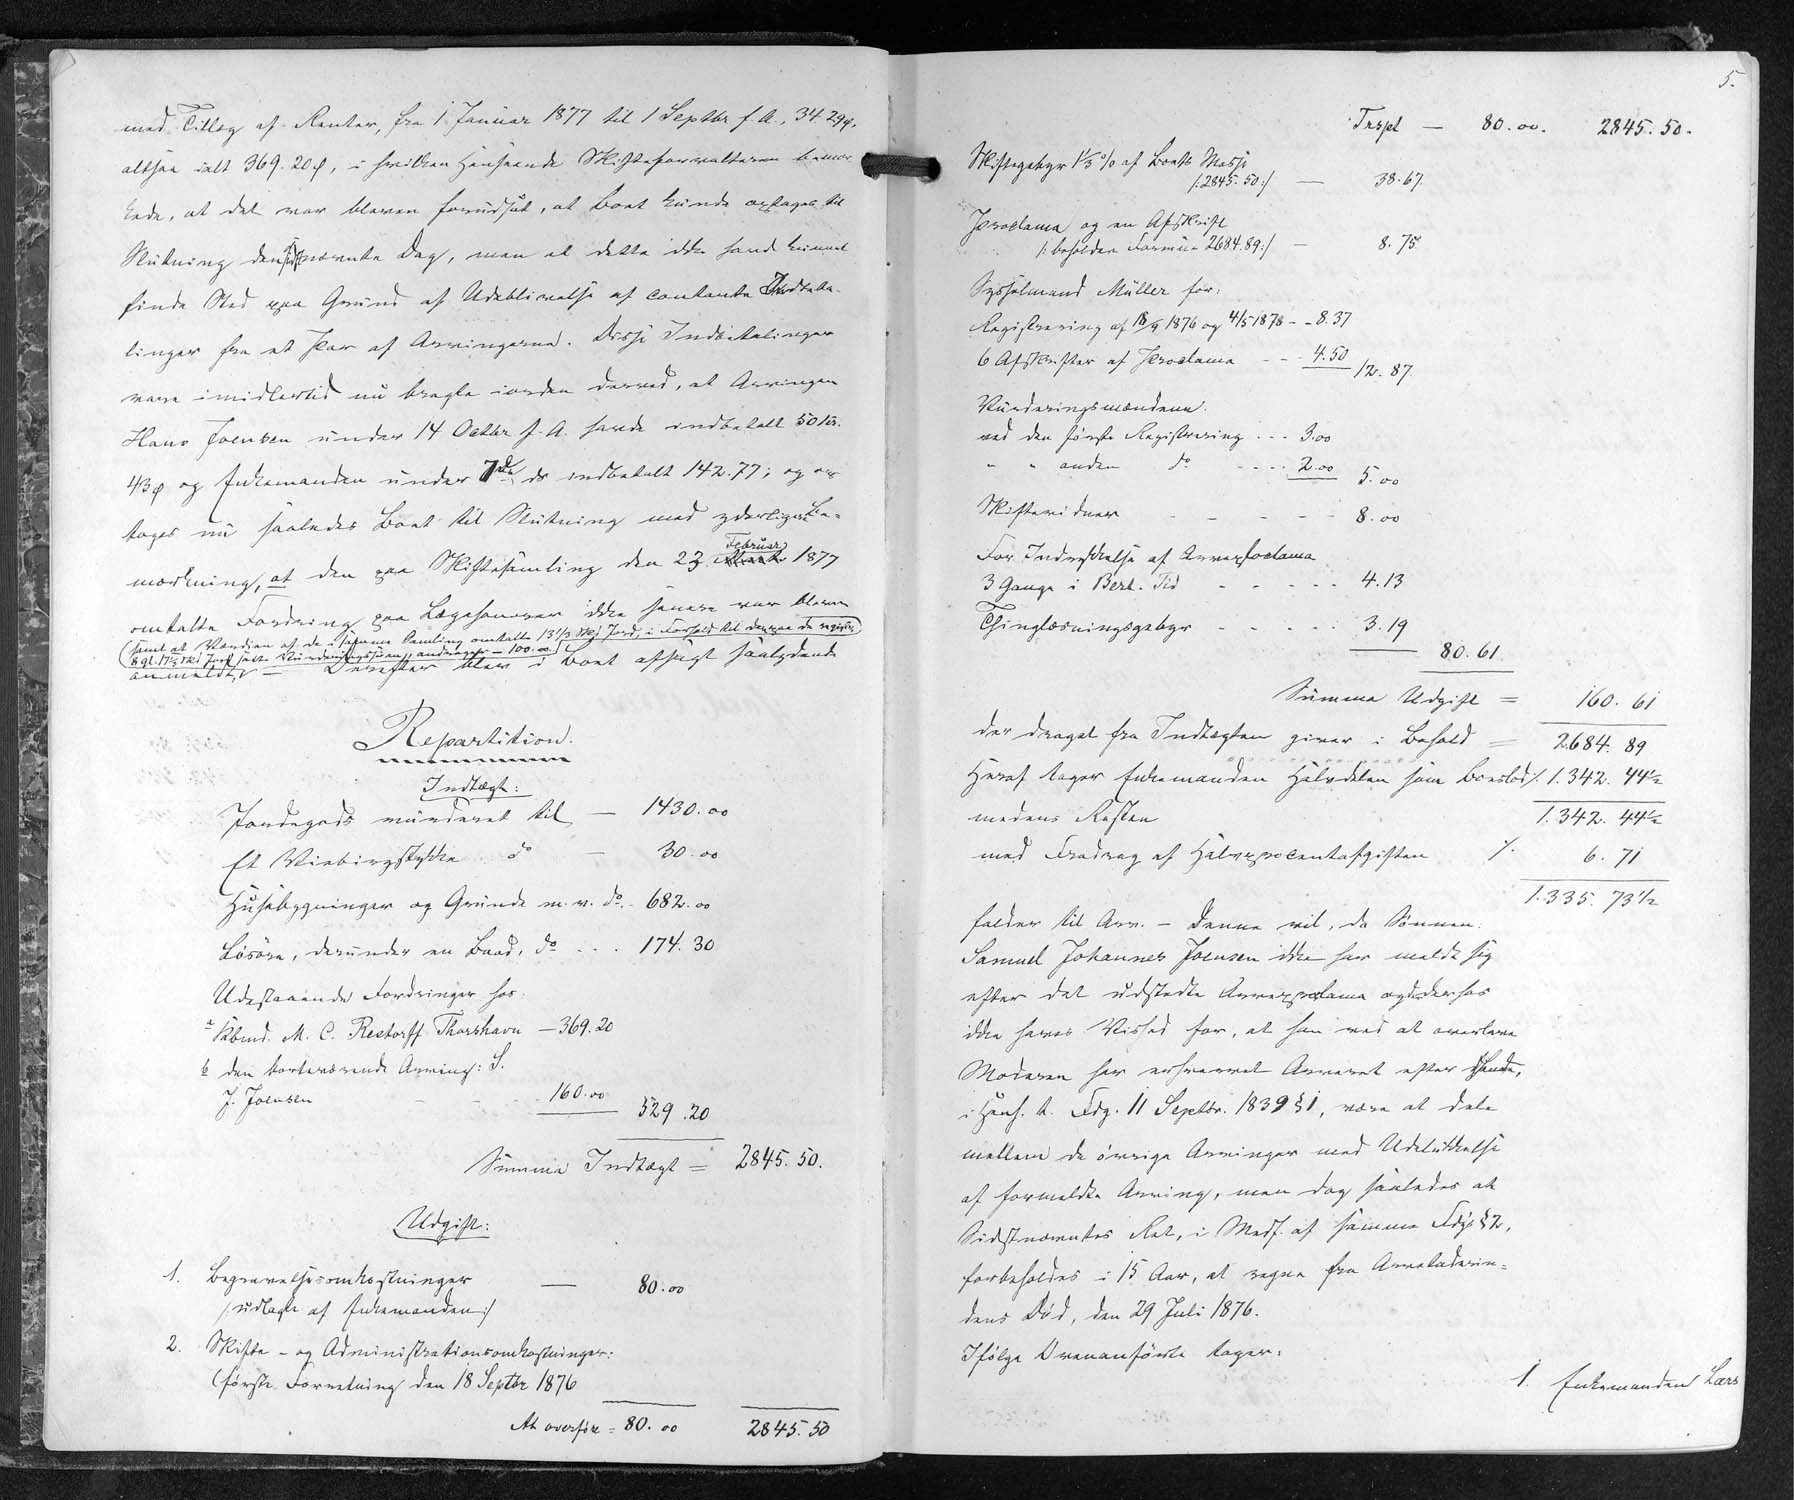 med Tillæg af Renter, fra 1 Januar 1877 til 1 Septbr f. A., 34. 29 ø,
altsaa ialt 369. 20 ø, i hvilken Henseende Skifteforvalteren bemær-
kede, at det var bleven forudsat, at Boet kunde optages til
Slutning den sidstnævnte Dag, men at dette ikke havde kunnet
finde Sted paa Grund af Udeblivelse af contante Indbeta-
linger fra et Par af Arvingerne. Disse Indbetalinger
vare imidlertid nu bragte iorden derved, at Arvingen
Hans Joensen under 14 Octbr f. A. havde indbetalt 50 Kr.
43 ø og Enkemanden under 7de ds indbetalt 142. 77; og op-
tages nu saaledes Boet til Slutning med yderligere Be-
mærkning, at den paa Skiftesamling den 23 Februar 1877
omtalte Fordring paa Lægehonorar ikke senere var bleven
(samt at Værdien af de i samme Samling omtalte 13 1/3 Skd Jord, i Forhold til den paa de
satte Vurderingssum, andrager — 100. 00)
anmeldt, — Derefter blev i Boet afsagt saalydende
Repartition.
Indtægt:
Jordegods vurderet til — 1430. 00
Et do — 30. 00
Husebygninger og Grunde m. v. do. - 682. 00
Løsøre, derunder en Baad, do . . . 174. 30
Udestaaende Fordringer hos:
a Kbmd. M. C. Restorff Thorshavn — 369. 20
b den bortværende Arving: S.
J. Joensen - - - 160. 00 529. 20
Summa Indtægt = 2845. 50.
Udgift:
1. Begravelsesomkostninger — 80. 00
/: udlagte af Enkemanden :/
2. Skifte- og Administrationsomkostninger:
(første Forretning den 18 Septbr 1876
At overføre = 80. 00 2845. 50
5.
Trspt — 80. 00. 2845. 50.
Skiftegebyr 1 1/3 % af Boets Masse
/: 2845. 50 :/ — 38. 67.
Proclama og en Afskrift
/: beholden Formue 2684. 89 :/ — 8. 75
Sysselmand Müller for:
Registrering af 18/9 1876 og 4/5 1878 - - 8. 37
6 Afskrifter af Proclama - - - 4. 50 12. 87.
Vurderingsmændene:
ved den første Registrering . . . 3. 00
" " anden do - - - - 2. 00 5. 00
Skiftevidner - - - - - 8. 00
For Indrykkelse af Arveproclama
3 Gange i Berl. Tid - - - - - 4. 13
Thinglæsningsgebyr - - - - - 3. 19
80. 61
Summa Udgift = 160. 61
der draget fra Indtægten giver i Behold = 2684. 89
Heraf tager Enkemanden Halvdelen som Boeslod /. 1.342. 44 1/2
medens Resten 1.342. 44 1/2
med Fradrag af Halvprocentafgiften /. 6. 71
1.335. 73 1/2
falder til Arv. — Denne vil, da Sønnen:
Samuel Johannes Joensen ikke har meldt sig
efter det udstedte Arveproclama og derhos
ikke haves Vished for, at han ved at overleve
Moderen har erhvervet Arveret efter hende,
i Henh. t. Fdg. 11 Septbr. 1839 § 1, være at dele
mellem de øvrige Arvinger med Udelukkelse
af formeldte Arving, men dog saaledes at
Sidstnævntes Ret, i Medf. af samme Fdgs § 2,
forbeholdes i 15 Aar, at regne fra Arveladerin-
dens Død, den 29 Juli 1876.
Ifølge Ovenanførte tager:
1. Enkemanden Lars